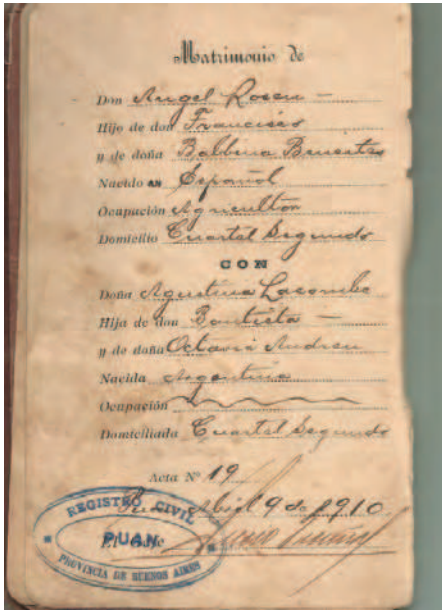 Matrimonio de
Don Angel Rosen —
Hijo de don Francisco
y de doña Balbina
Nacido en Español
Ocupación Agricultor
Domicilio Cuartel Segundo
CON
Doña Agustina Lacombe
Hija de don Bautista —
y de doña Octavia Andreu
Nacida Argentina
Ocupación
Domiciliada Cuartel Segundo
Acta Nº 19
Puan Abril 9 de 1910
El Jefe
REGISTRO CIVIL
PUAN
PROVINCIA DE BUENOS AIRES